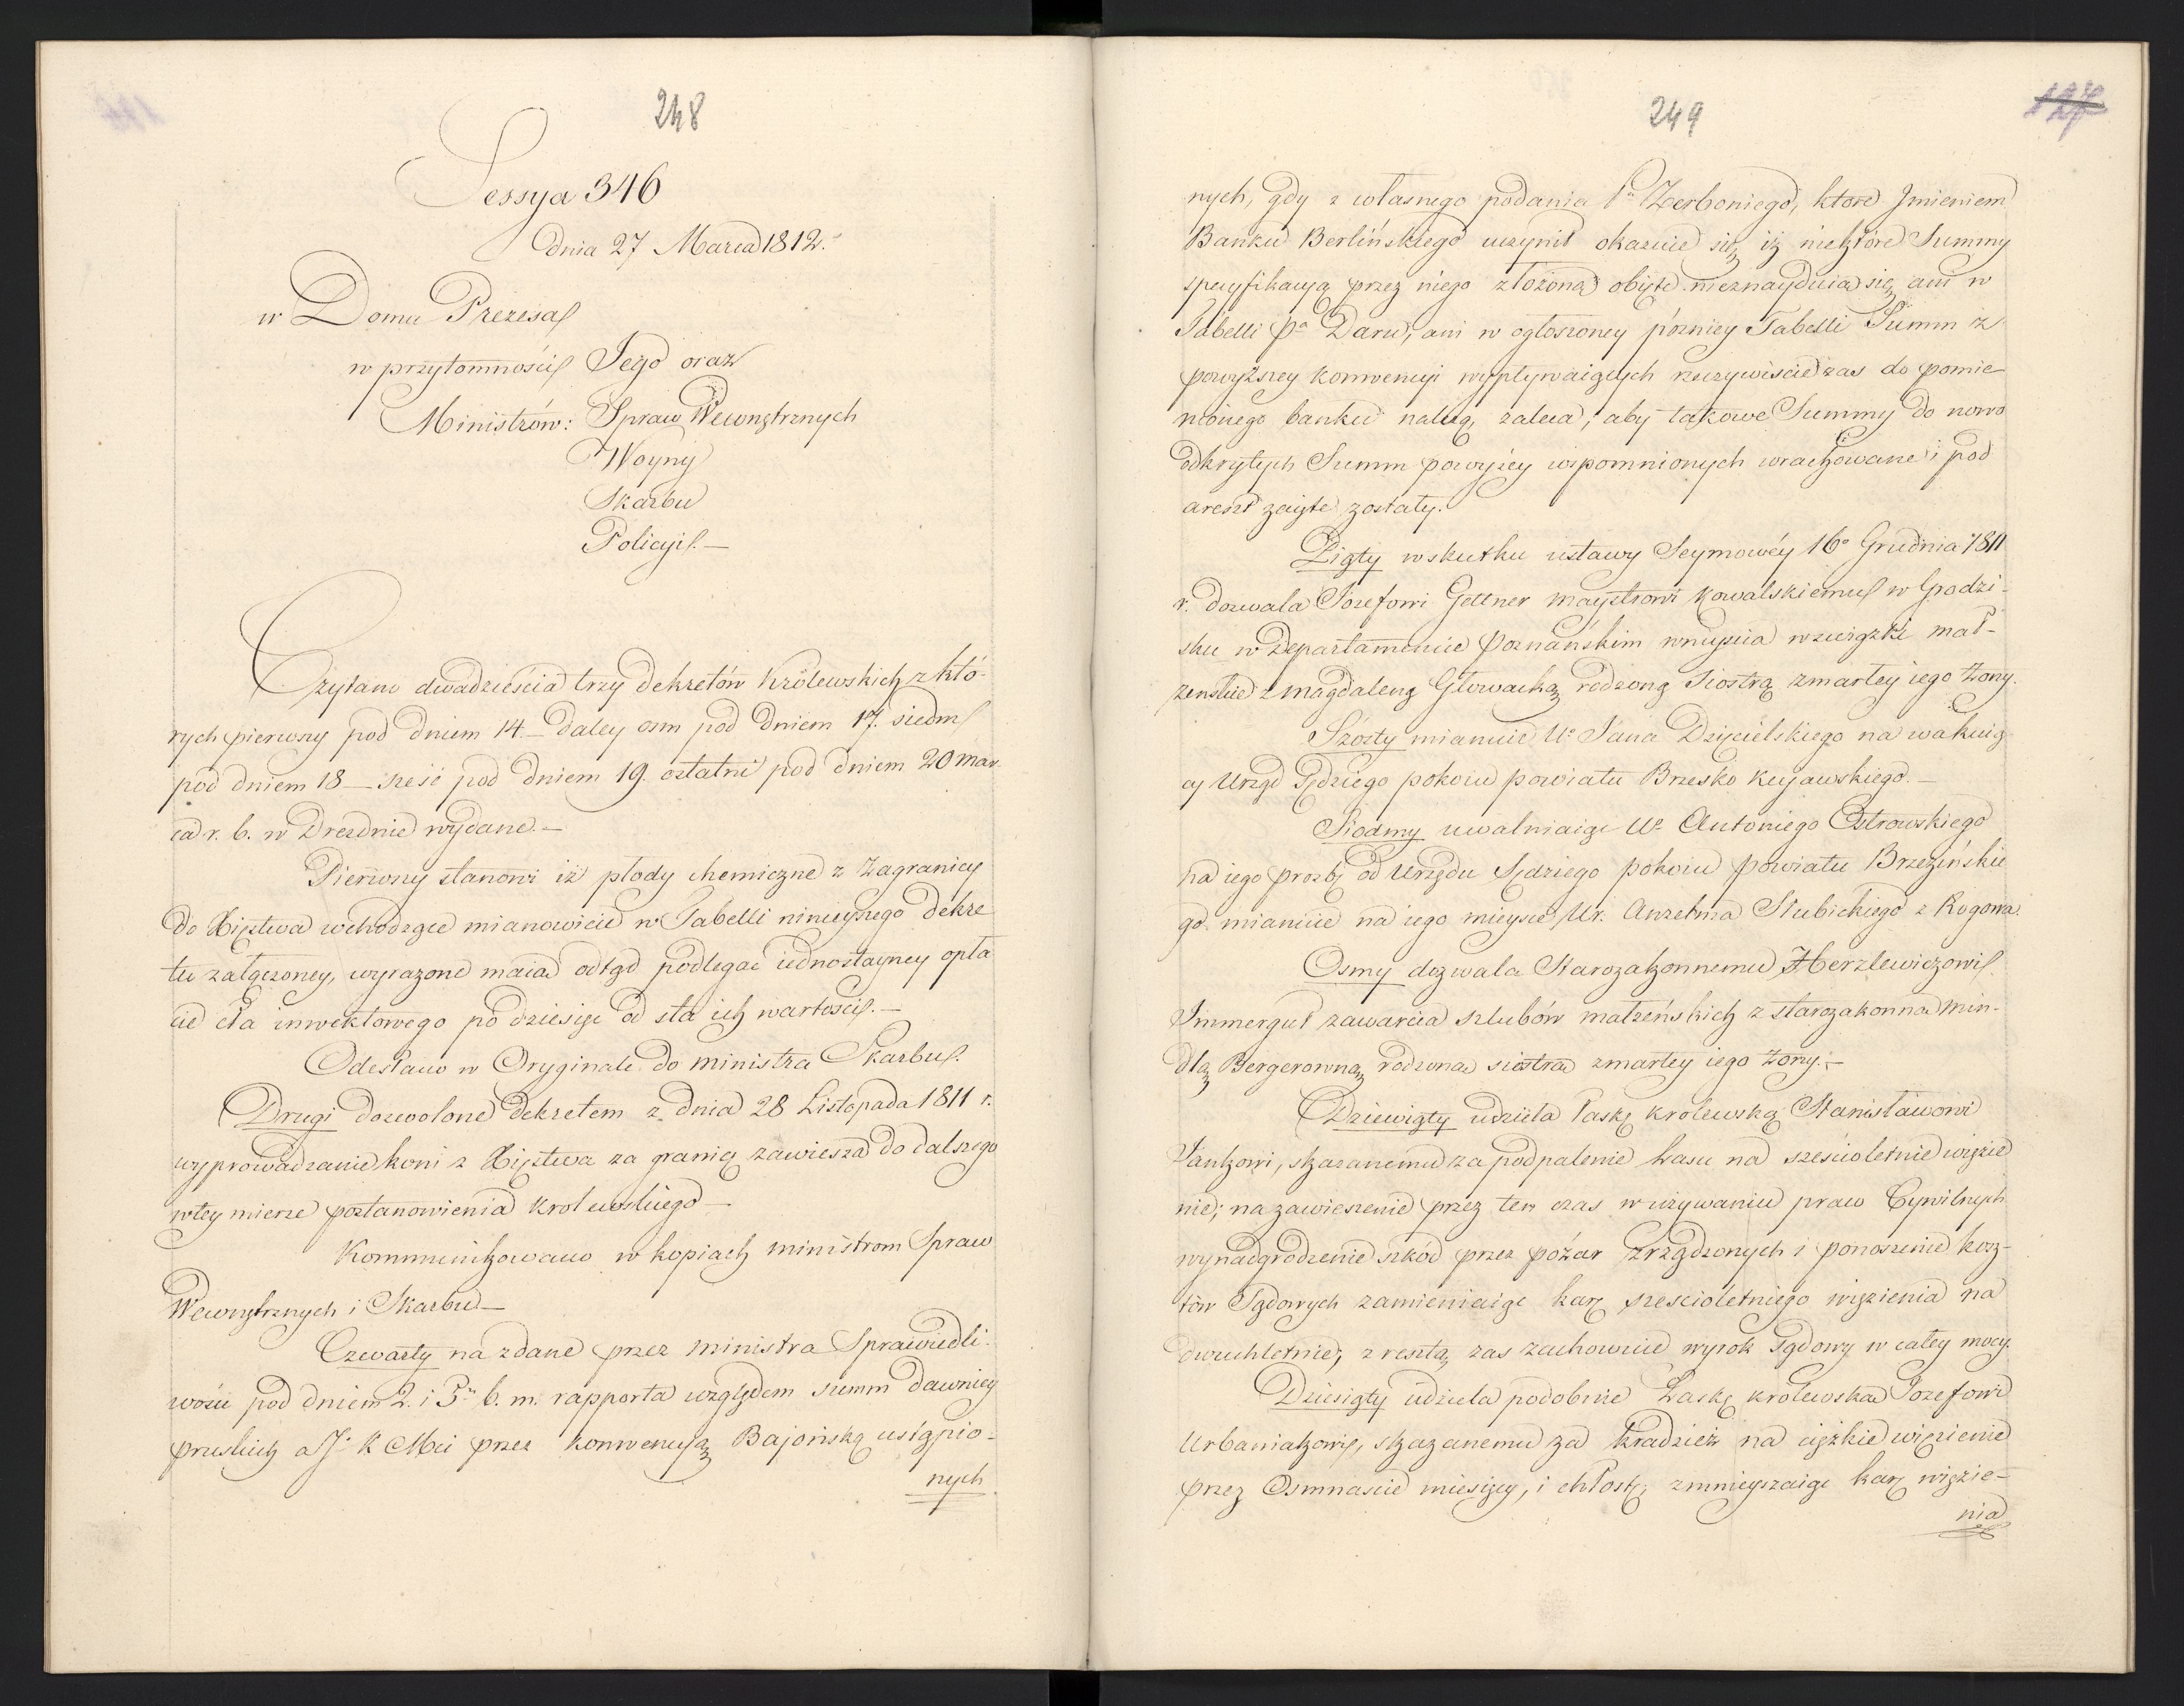 248
Sessya 346
dnia 27 Marca 1812.
w Domu Prezesa
w przytomności Jego oraz
Ministrów: Spraw Wewnętrznych
Woyny
Skarbu
Policyi.—
Czytano dwadzieścia trzy dekretów Królewskich z któ-
rych pierwszy pod dniem 14.— daley osm pod dniem 17. siedm
pod dniem 18 — sześć pod dniem 19. ostatni pod dniem 20 mar-
ca r. b. w Dreznie wydane.—
Pierwszy stanowi iż płody chemiczne z Zagranicy
do Xięstwa wchodzące mianowicie w Tabelli ninieyszego dekre
tu załączoney, wyrażone maią odtąd podlegać iednostayney opła
cie cła inwektowego po dziesięć od sta ich wartości.—
Odesłano w Oryginale do ministra Skarbu.
Drugi dozwolone dekretem z dnia 28 Listopada 1811 r.
wyprowadzanie koni z Xięstwa za granicę zawiesza do dalszego
w tey mierze postanowienia Krolewskiego—
Kommunikowano w kopiach ministrom Spraw
Wewnętrznych i Skarbu—
Czwarty na zdane przez ministra Sprawiedli-
wości pod dniem 2. i 3. b. m. rapporta względem summ dawniey
pruskich a J. K Mci przez konwencyą Bajońską ustąpio-
nych
249
127
nych, gdy z własnego podania Pa Zerboniego, ktore Jmieniem
Banku Berlińskiego uczynił okazuie się iż niektóre Summy
specyfikacyą przez niego złożoną obięte nieznayduią się ani w
Tabelli Pa Daru, ani w ogłoszoney pózniey Tabelli Summ z
powyższey konwencyi wypływaiących rzeczywiscie zas do pomie-
nionego banku należą, zaleca, aby takowe Summy do nowo
odkrytych Summ powyżey wspomnionych wrachowane i pod
areszt zaięte zostały.
Piąty w skutku ustawy Seymowéy 16o Grudnia 1811
r. dozwala Jozefowi Gettner maystrowi kowalskiemu w Grodzi-
sku w Departamencie Poznańskim wniyścia w związki mał-
zenskie z Magdaleną Głowacką rodzoną siostrą zmarłey iego Żony.
Szósty mianuie Ur Jana Dzięcielskiego na wakuią-
cy Urząd Sędziego pokoiu powiatu Brzesko Kujawskiego.—
Siodmy uwalniaiąc Ur Antoniego Ostrowskiego
na iego prozbę od Urzędu Sędziego pokoiu powiatu Brzezińskie
go mianuie na iego mieysce Ur. Anzelma Słubickiego z Rogowa.
Osmy dozwala Starozakonnemu Herzlewiczowi
Jmmergut zawarcia szlubów małżeńskich z starozakonną Min-
dlą Bergerowną rodzoną siostrą zmarłey iego Żony.—
Dziewiąty udziela łaskę krolewską Stanisławowi
Jankowi, skazanemu za podpalenie Lasu na sześcioletnie więzie
nie; na zawieszenie przez ten czas w używaniu praw Cywilnych
wynadgrodzenie szkód przez pożar zrządzonych i ponoszenie kosz-
tów Sądowych zamieniaiąc karę sześcioletniego więzienia na
dwuchletnie; z resztą zas zachowuie wyrok Sądowy w całey mocy.
Dziesiąty udziela podobnie Łaskę królewską Jozefowi
Urbaniakowi, skazanemu za kradzież na cięzkie więzienie
przez Osmnaście miesięcy, i chłostę, zmnieyszaiąc karę więzie-
nia